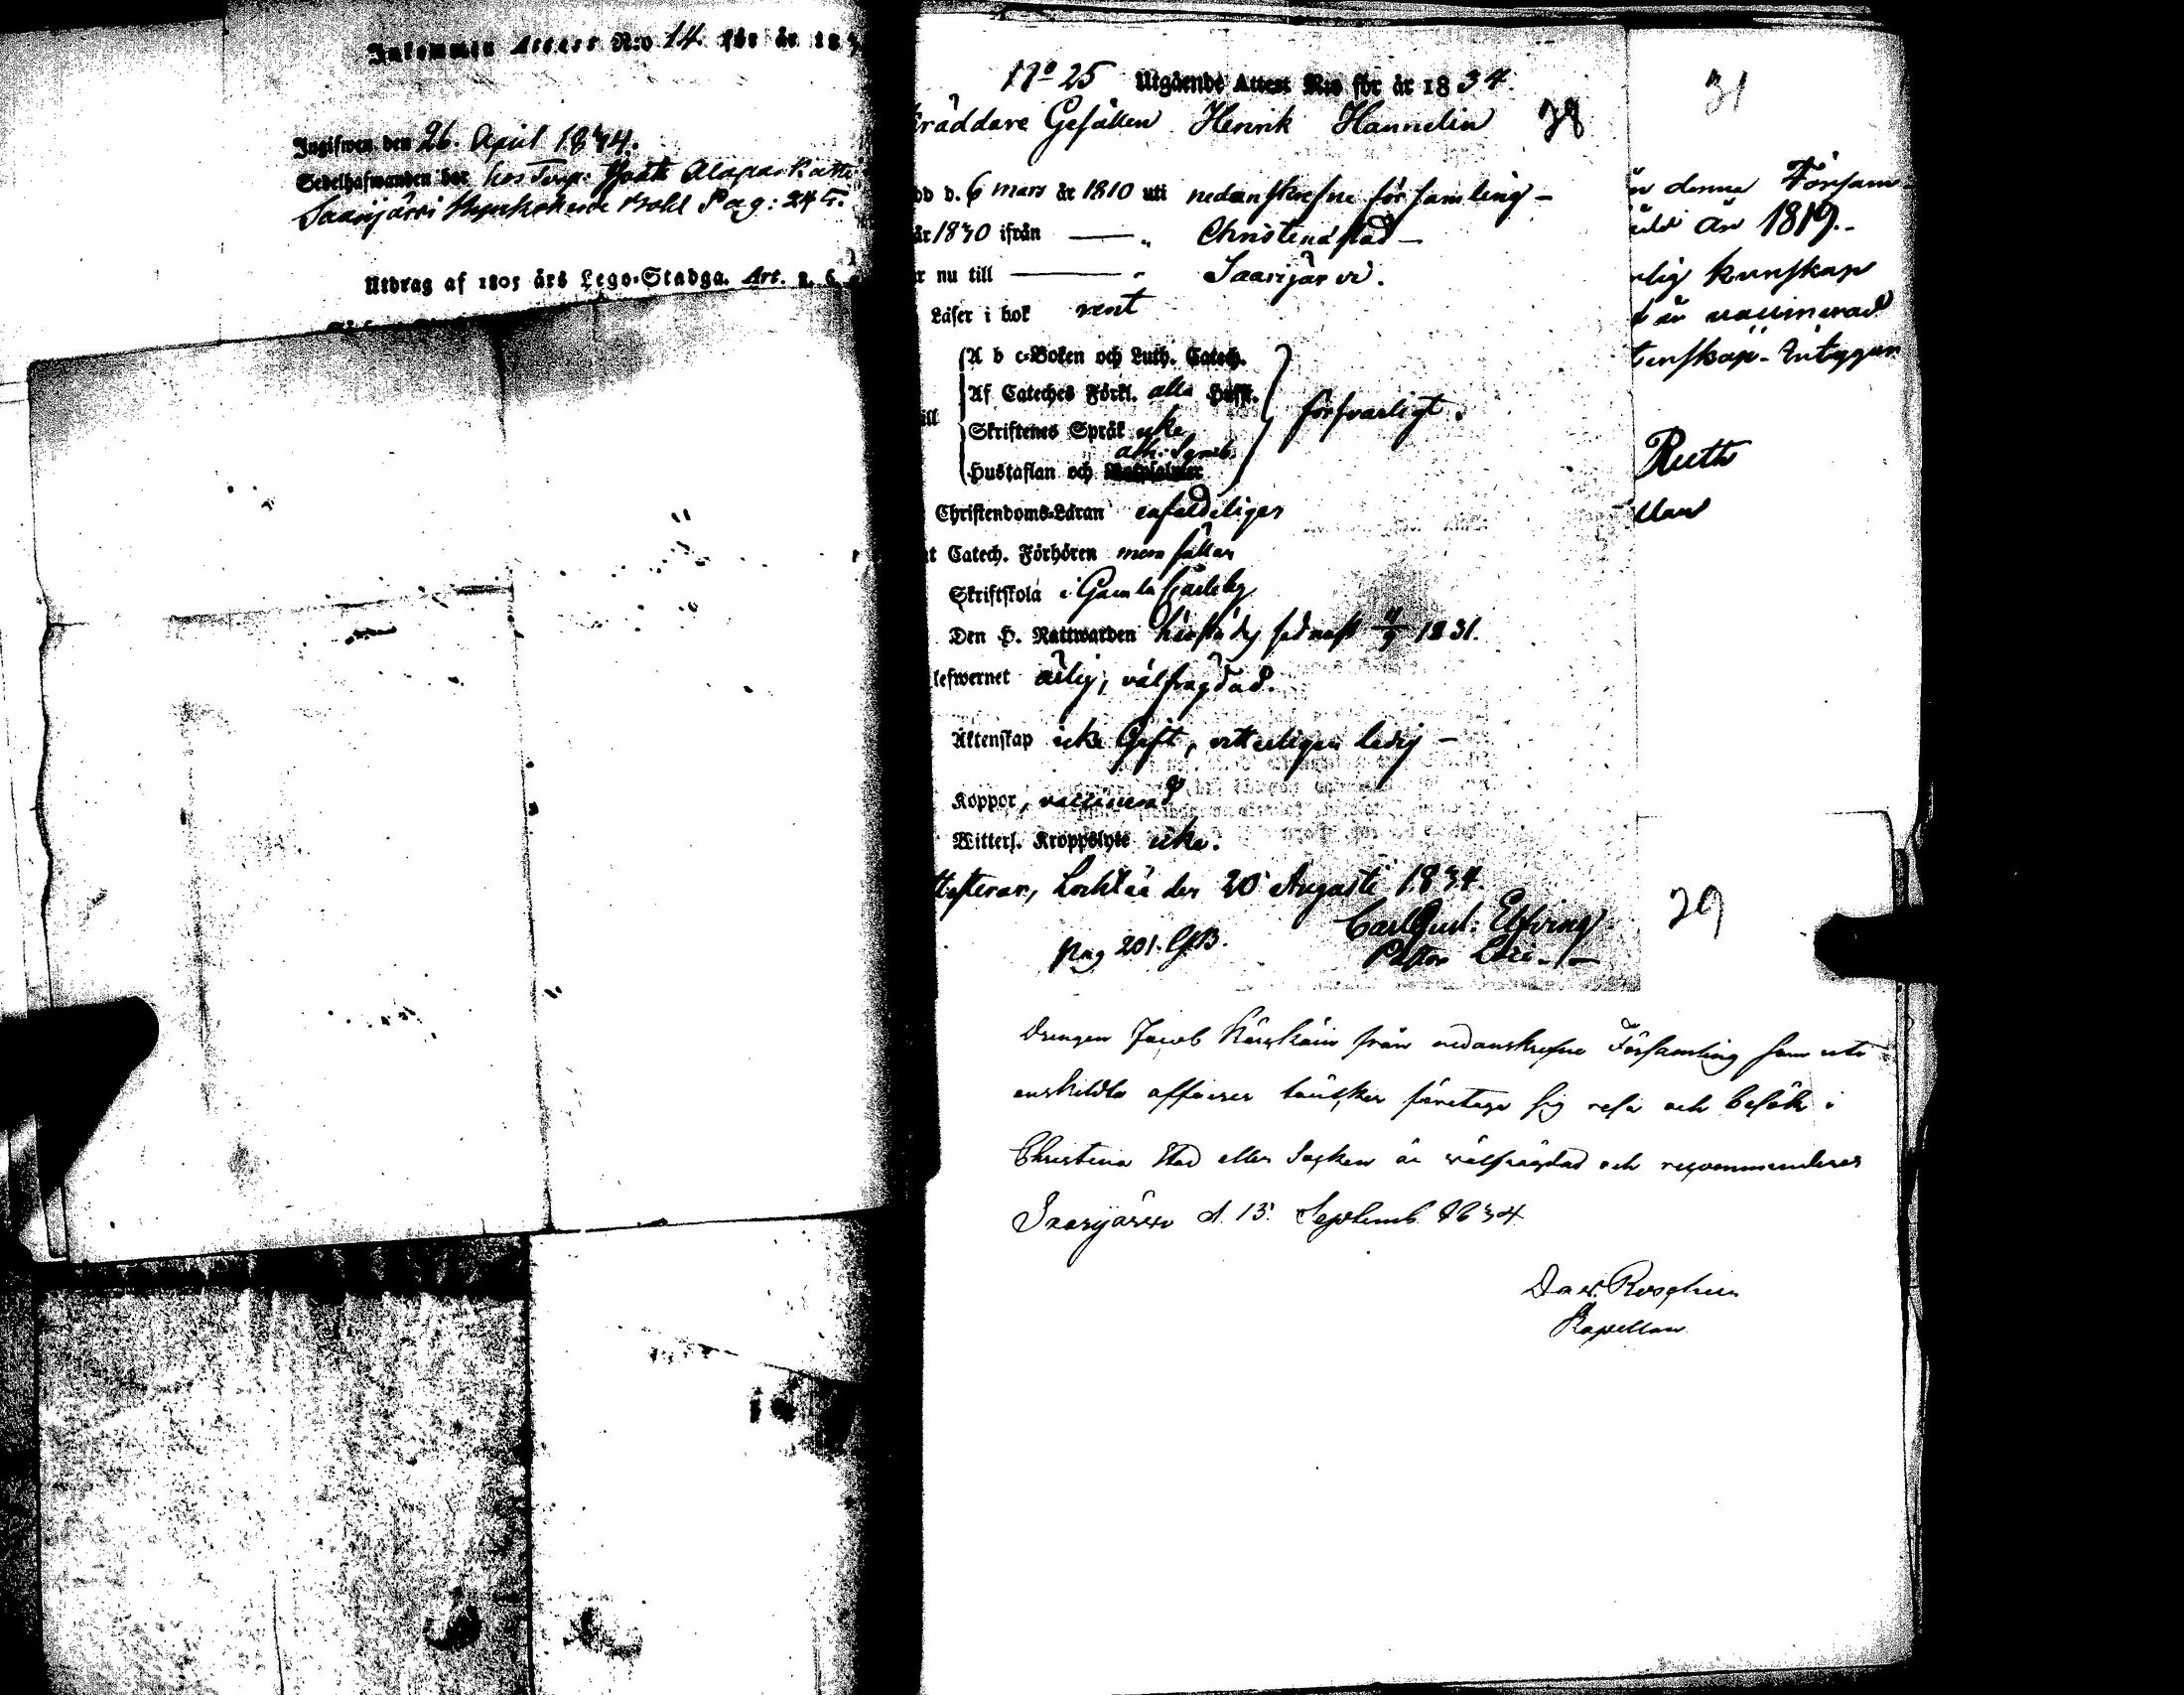 Inkommen Attest N:o 14. för år 183
Ingifwen den 26. April 1834.
Sedelhafwanden bor hos Torp:
Saarijärvi Pag: 245.
Utdrag af 1805 års Lego-Stadga. Art. 2. 6.
No 25 Utgående Attest N:o för år 1834.
räddare Gesällen Henrik Hannelin 38
dd d. 6 mars år 1810 uti nedanskrefne församling -
år 1830 ifrån — " Christinæstad -
r nu till — " Saarijärvi.
Läser i bok rent
A b c-Boken och Luth. Catech.
Af Cateches Förkl. alla Hufst.
Skriftenes Språk icke
ath. Symb.
Hustaflan och
försvarligt.
Christendoms-Läran enfaldeligen
t Catech. Förhören
Skriftskola i Gamla Carleby
Den H. Nattwarden härstädes sednast 1831.
lefwernet ärlig, välfrägdad.
Äktenskap icke Gift, vitterligen ledig -
Koppor, vaccinerad
Witterl. Kroppslyte icke.
Attesterar, Lochteå den 20 Augusti 1834.
Carl Gust. Elfving
Pastor Loci
pag 201.
31
n denna Försam
1819.-
lig kunskap
är vaccinerad
tenskap- Intygar
Ruth
llan
29
Drengen Jacob från nedanskrefne Församling som uti
enskildta affairer tänker företaga sig resa och besök i
Christina Stad eller Socken är välfrägdad och recommenderas
Saarijärvi d. 13. Septemb. 1834
Dav. Roschier
Kapellan